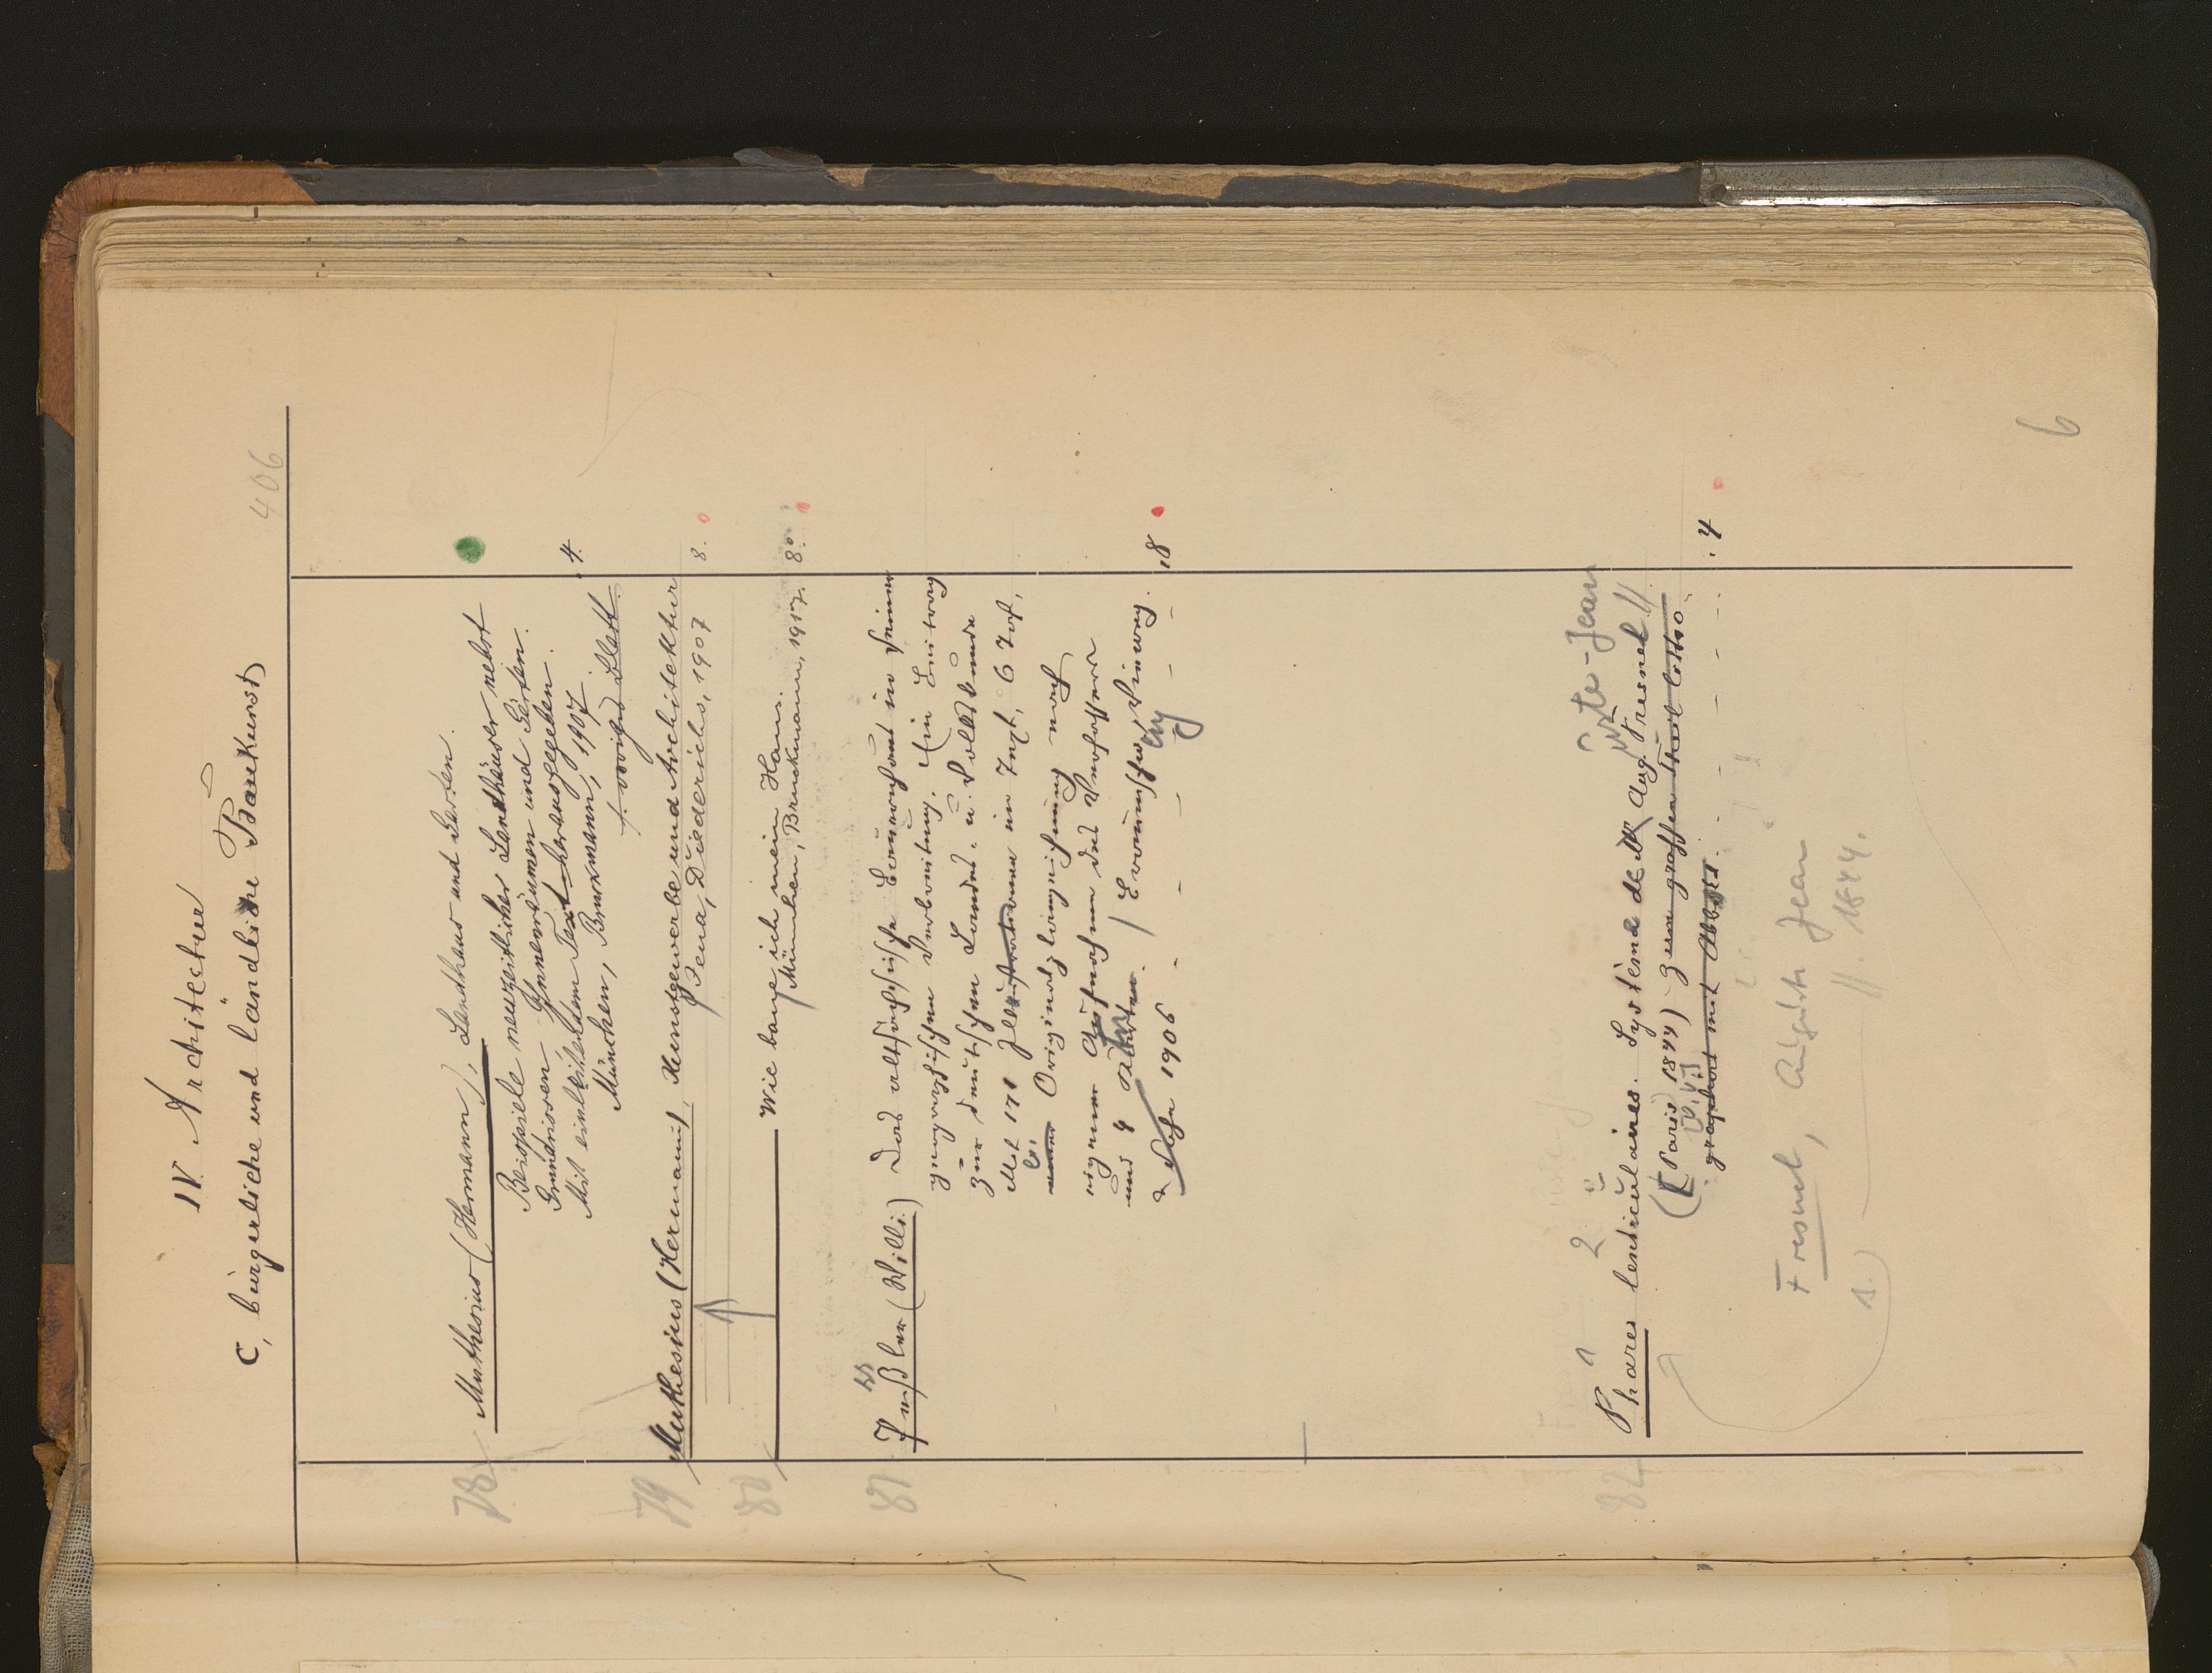 IV. Architectur
C, bürgerliche und ländliche Baukunst
406
78 Muthesius (Hermann), Landhaus und Garten.
Beispiele neuzeitlicher Landhäuser nebst
Grundrissen Innenräumen und Gärten.
Mit einleitendem Text herausgegeben.
München, Bruckmann, 1907. 4.
s. voriges Blatt
79 Muthesius (Hermann), Kunstgewerbe und Architektur
Jena, Diederichs, 1907 8.
80 Wie baue ich mein Haus.
München, Bruckmann, 1917. 8°.
81 Peßler (Willi) Das altsächsische Bauernhaus in seiner
geographischen Verbreitung. Ein Beitrag
zur deutschen Landes- u. Volkskunde
Mit 171 Illustrationen im Text, 6 Taf,
einer Originalplanzeichnung nach
eigenen Aufnahmen des Verfassers
und 4 Karten. / Braunschweig, Vieweg.
& Sohn 1906 - - - - - .8
üste-Jean
1 2
82 Phares lenticulaires. Système de Mr Aug. Fresnel //
(Paris 1844) zum großen Theil litho-
graphirt mit Abbdgs. - - - - .4
Fresnel, Auguste Jean
1.) // 1844.
6